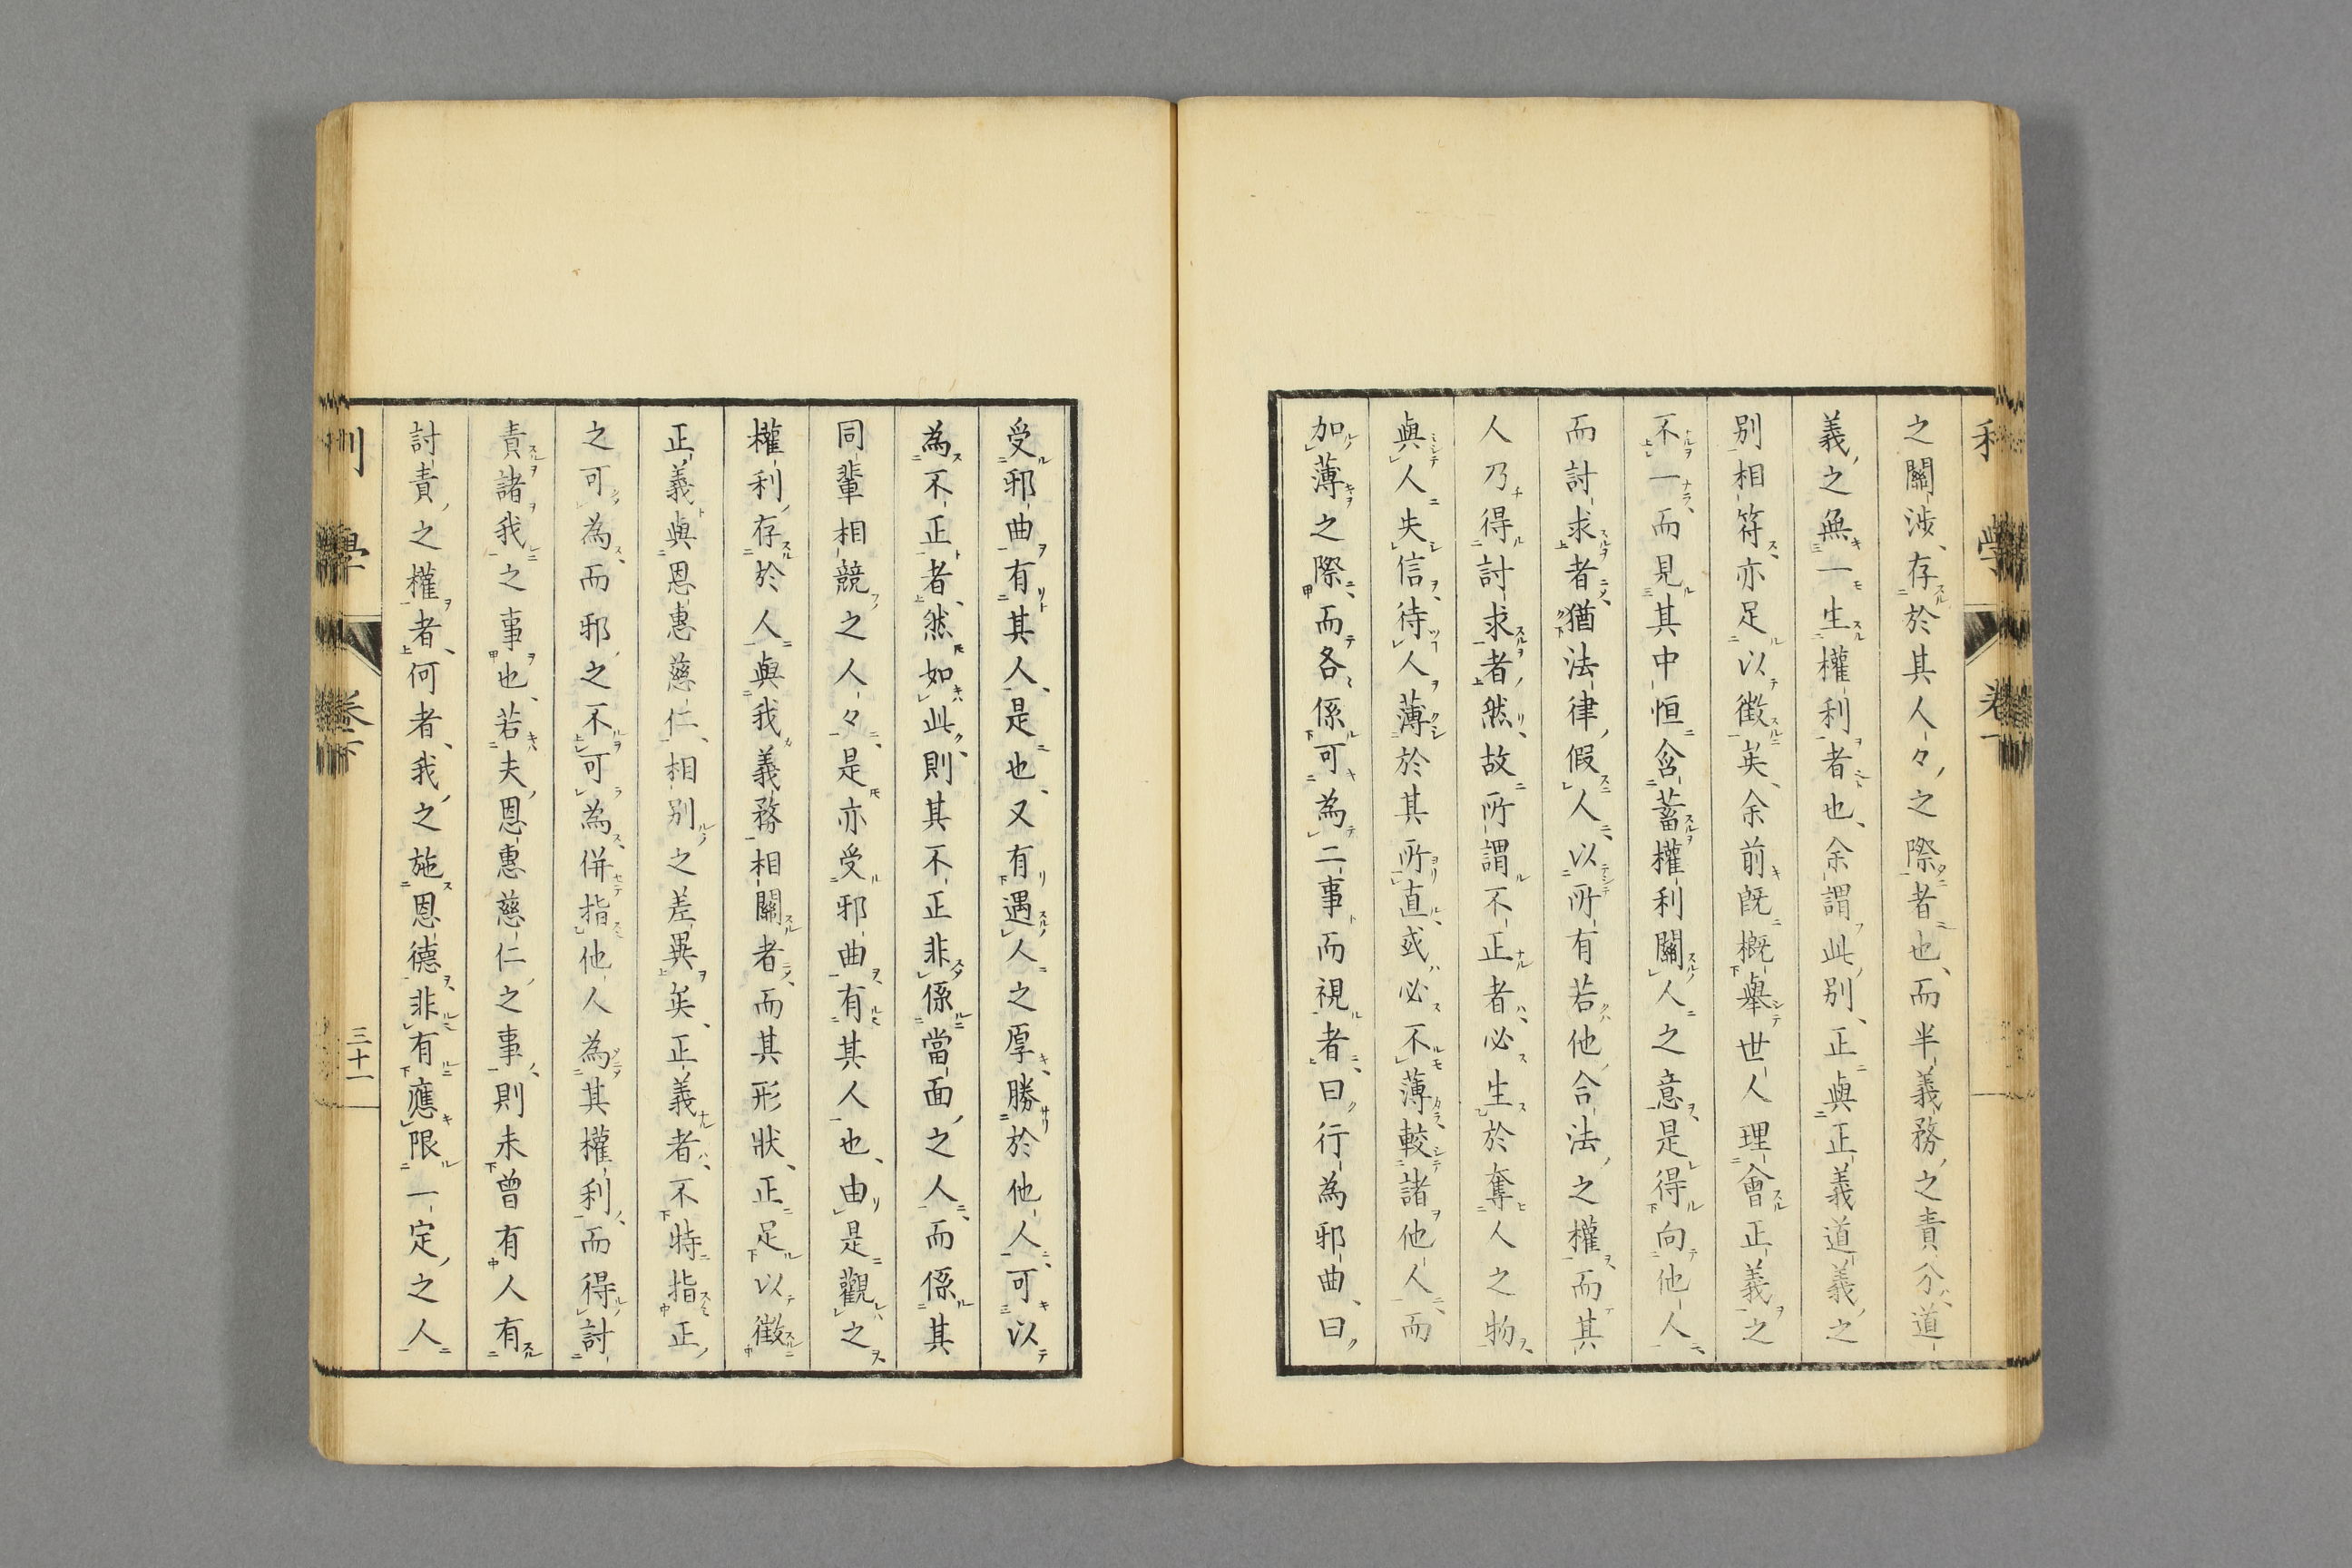 之關涉、存於其人々之際者也、而半義務之責分、道
義之無一生權利者也、余謂此別、正與正義道義之
別相符、亦足以徵矣、余前既概擧世人理會正義之
不一、而見其中恒含蓄權利關人之意、是得向他人、
而討求者、猶法律假人、以所有若他合法之權、而其
人乃得討求者然、故所謂不正者、必生於奪人之物、
與人失信、待人薄於其所直、或必不薄、較諸他人、而
加薄之際、而各係可為二事而視者、曰行為邪曲、曰
受邪曲有其人、是也、又有遇人之厚、勝於他人、可以
為不正者、然如此、則其不正非係當面之人、而係其
同輩相競之人々、是亦受邪曲、有其人也、由是觀之、
權利存於人、與我義務相關者、而其形狀、正足以徵
正義與恩惠慈仁、相別之差異矣、正義者、不特指正
之可為、而邪之不可為、併指他人為其權利、而得討
責諸我之事也、若夫恩惠慈仁之事、則未曾有人有
討責之權者、何者、我之施恩德、非有應限一定之人
學
卷一
三十一